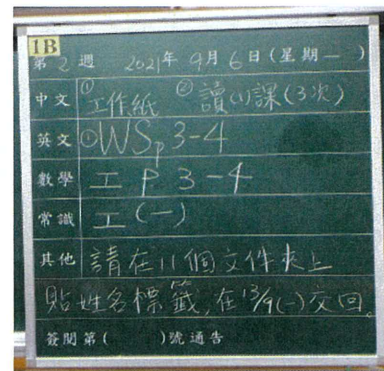 1B
第2週 2021年9月6日(星期一)
中文 ①工作紙 ②讀(1)課(3次)
英文 ①WS p3-4
數學 工 P 3-4
常識 工(一)
其他 請在11個文件夾上
貼姓名標籤,在13/9(一)交回。
簽閱第( )號通告